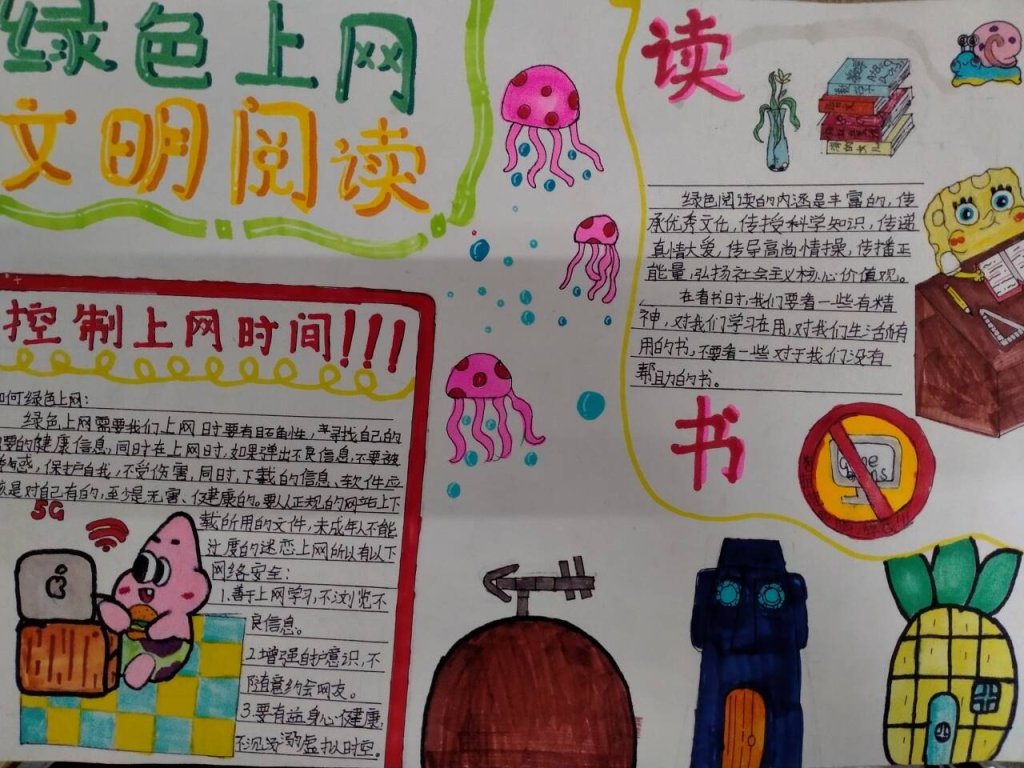 绿色上网
文明阅读
控制上网时间!!!
如何绿色上网:
绿色上网需要我们上网时要有目的性,寻找自己的
要的健康信息,同时在上网时,如果弹出不良信息,不要被
惑,保护自我,不受伤害,同时,下载的信息、软件应
该是对自己有的,至少是无害、健康的。要从正规的网站上下
载所用的文件,未成年人不能
过度的迷恋上网所以有以下
网络安全:
1.善于上网学习,不浏览不
良信息。
2.增强自护意识,不
随意约会网友。
3.要有益身心健康,
不沉溺虚拟时空。
5G
读
绿色阅读的内涵是丰富的,传
承优秀文化,传授科学知识,传递
真情大爱,传导高尚情操,传播正
能量,弘扬社会主义核心价值观。
在看书时,我们要看一些有精
神,对我们学习在用,对我们生活所有
用的书,不要看一些对于我们没有
帮助的书。
书
ABC